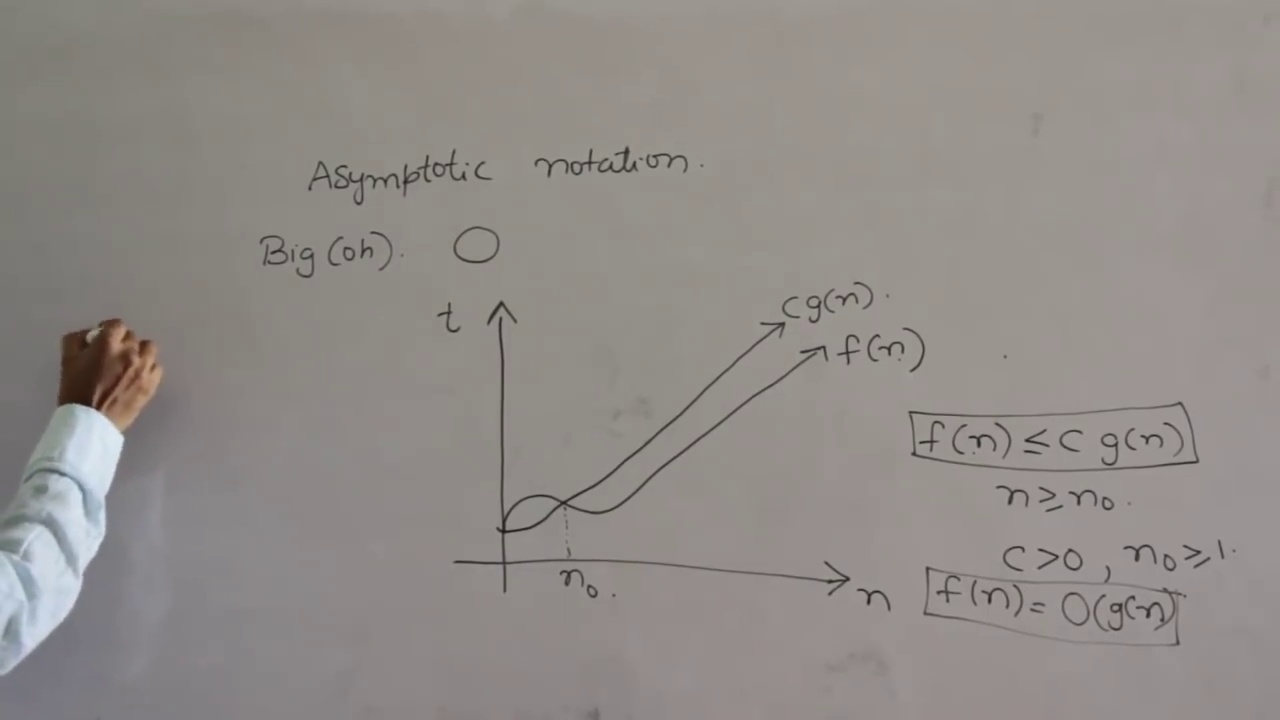 Asymptotic notation.
Big (oh). O
t
c g(n).
f(n)
f(n) ≤ c g(n)
n ≥ n₀.
c > 0, n₀ ≥ 1.
f(n) = O(g(n)
n₀.
n